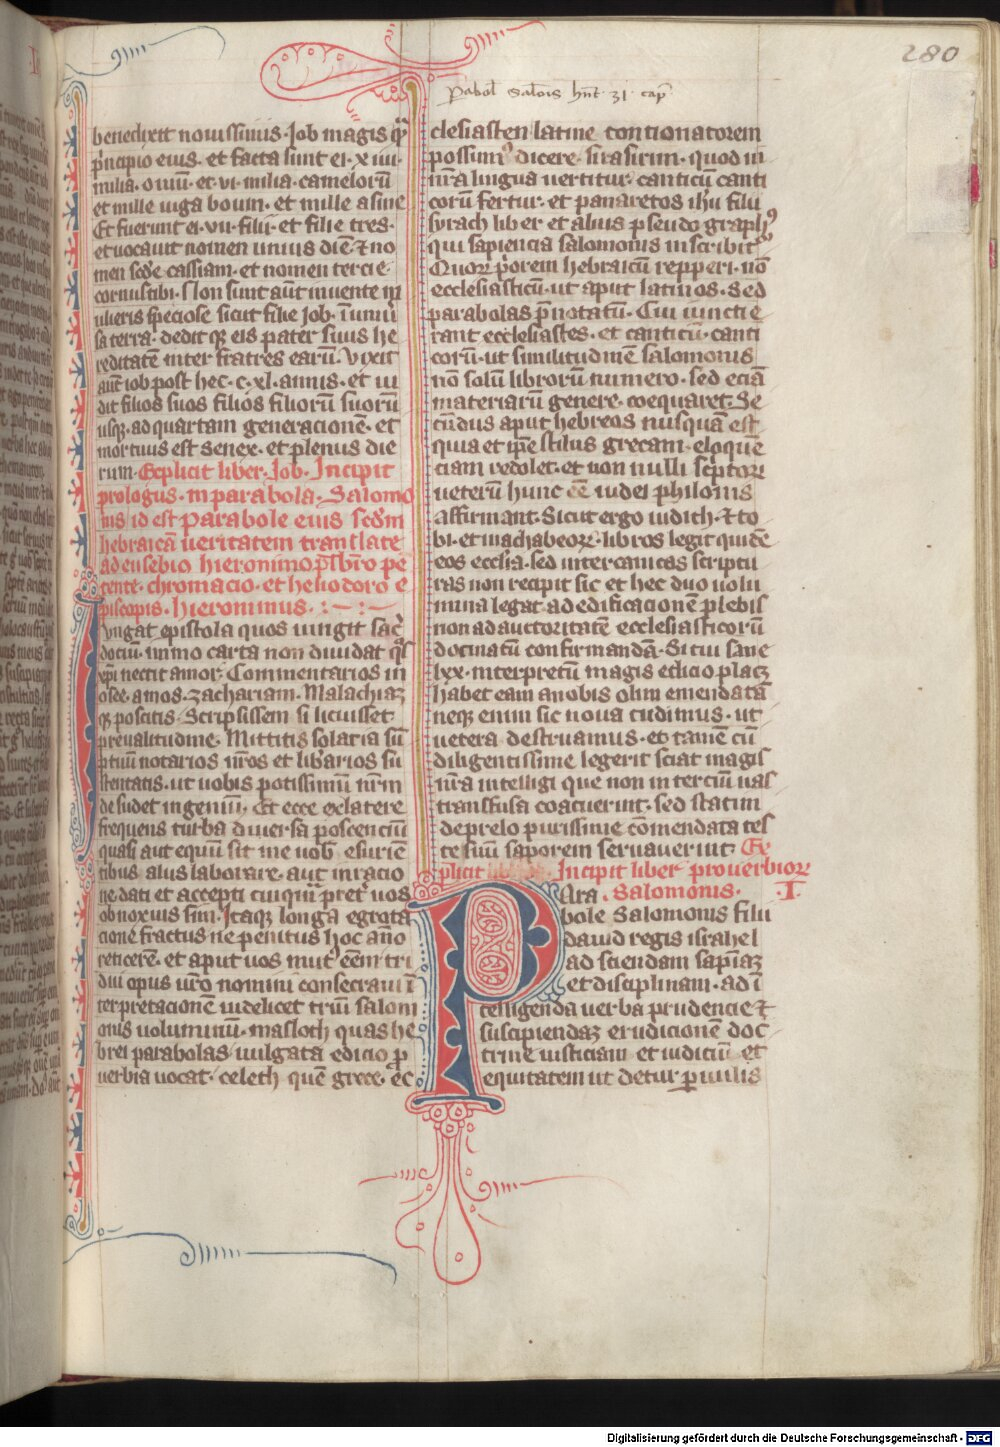 280
Parabol Salois hnt 31 cap
benedixit nouissimis · Job magis q̄
p̄ncipio eius · et facta sunt ei · x iiii ·
milia · ouiū · et · vi · milia · camelorū
et mille iuga boum · et mille asine
Et fuerunt ei · vii · filii · et filie tres ·
et uocauit nomen unius diē ⁊ no
men scd̄e cassiam · et nomen tercie ·
cornustibi · Non sunt aūt inuente m
ulieris speciose sicut filie Job · in uniu̇
sa terra · dedit q3 eis pater suus he
reditatē inter fratres earū · Vixit
aūt iob post hec · c · xl · annis · et ui
dit filios suos filios filiorū suorū
usq3 · ad quartam generacionē · et
mortuus est senex · et plenus die
rum · Explicit liber · Job · Incipit
prologus · in parabola · Salomo
nis id est parabole eius scd̄m
hebraicā ueritatem translate
ad eusebio hieronimo p̄sbr̄o pe
tente · chromacio · et heliodoro e
piscopis · hieronimus ·
Iungat epistola quos iungit sac̄
dociū · immo carta non diuidat q̄s
xp̄i nectit amor · Commentarios in
osee · amos · zachariam · Malachiaz
q3 poscitis · Scripsissem si licuisset
preualitudine · Mittitis solacia sū
ptuū notarios nr̄os et librarios su
stentatis · ut uobis potissimū nr̄m
desudet ingeniū · Et ecce ex latere
frequens turba diuersa poscenciū
quasi aut equū sit me uob̄ esurien
tibus aliis laborare · aut in racio
ne dati et accepti cuiquā pret̄ uos
obnoxius sim · Itaq3 longa egrota
cione fractus ne penitus hoc an̄o
reticerē · et aput uos mut̄ eēm tri
dui opus ur̄o nomini consecraui ī
terpretacionē uidelicet triū salom
onis uoluminū · masloth quas he
brei parabolas · uulgata edicio p̄
uerbia uocat · celeth quē grece · ec
clesiasten latine contionatorem
possim9 dicere · sirasirim · quod in
nr̄a lingua uertitur · canticū canti
corū fertur · et panaretos ih̄u filii
syrach liber et alius pseudographꝰ
qui sapiencia salomonis inscribit᷒
Quorꝝ p̄orem hebraicū repperi · nō
ecclesiasticū · ut aput latinos · Sed
parabolas p̄notatū · Cui iuncti e
rant ecclesiastes · et canticū · canti
corū · ut similitudinē salomonis
nō solū librorū numero · sed eciā
materiarū genere · coequaret · Se
cūdus aput hebreos nusquā est
quia et ip̄e stilus grecam · eloquē
ciam redolet · et non nulli sc̄ptorꝝ
ueterū hunc eē iudei philonis
affirmant · Sicut ergo iudich · ⁊ to
bi · et machabeorꝝ · libros legit quidē
eos ecclīa · sed inter canicas scriptu
ras non recipit sic et hec duo uolu
mina legat · ad edificacionē plebis
non ad auctoritatē ecclesiasticorū
docmatū confirmandā · Si cui sane
lxx · interpretū magis edicio placꝫ
habet eam a nobis olim emendatā
neq3 enim sic noua cudimus · ut
uetera destruamus · et tamē cū
diligentissime legerit sciat magis
nr̄a intelligi que non in terciū uas
transfusa coacuerint · sed statim
de prelo purissime cōmendata tes
te suū saporem seruauerint · Ex
plicit Incipit liber prouerbiorꝝ
Para · Salomonis · I
bole Salomonis filii
dauid regis israhel
ad sciendam sapiaꝫ
et disciplinam · ad ī
telligenda uerba prudencie ⁊
suscipiendaꝫ erudicionē doc
trine iusticiam et iudiciū et
equitatem ut detur paruulis
Digitalisierung gefördert durch die Deutsche Forschungsgemeinschaft - DFG